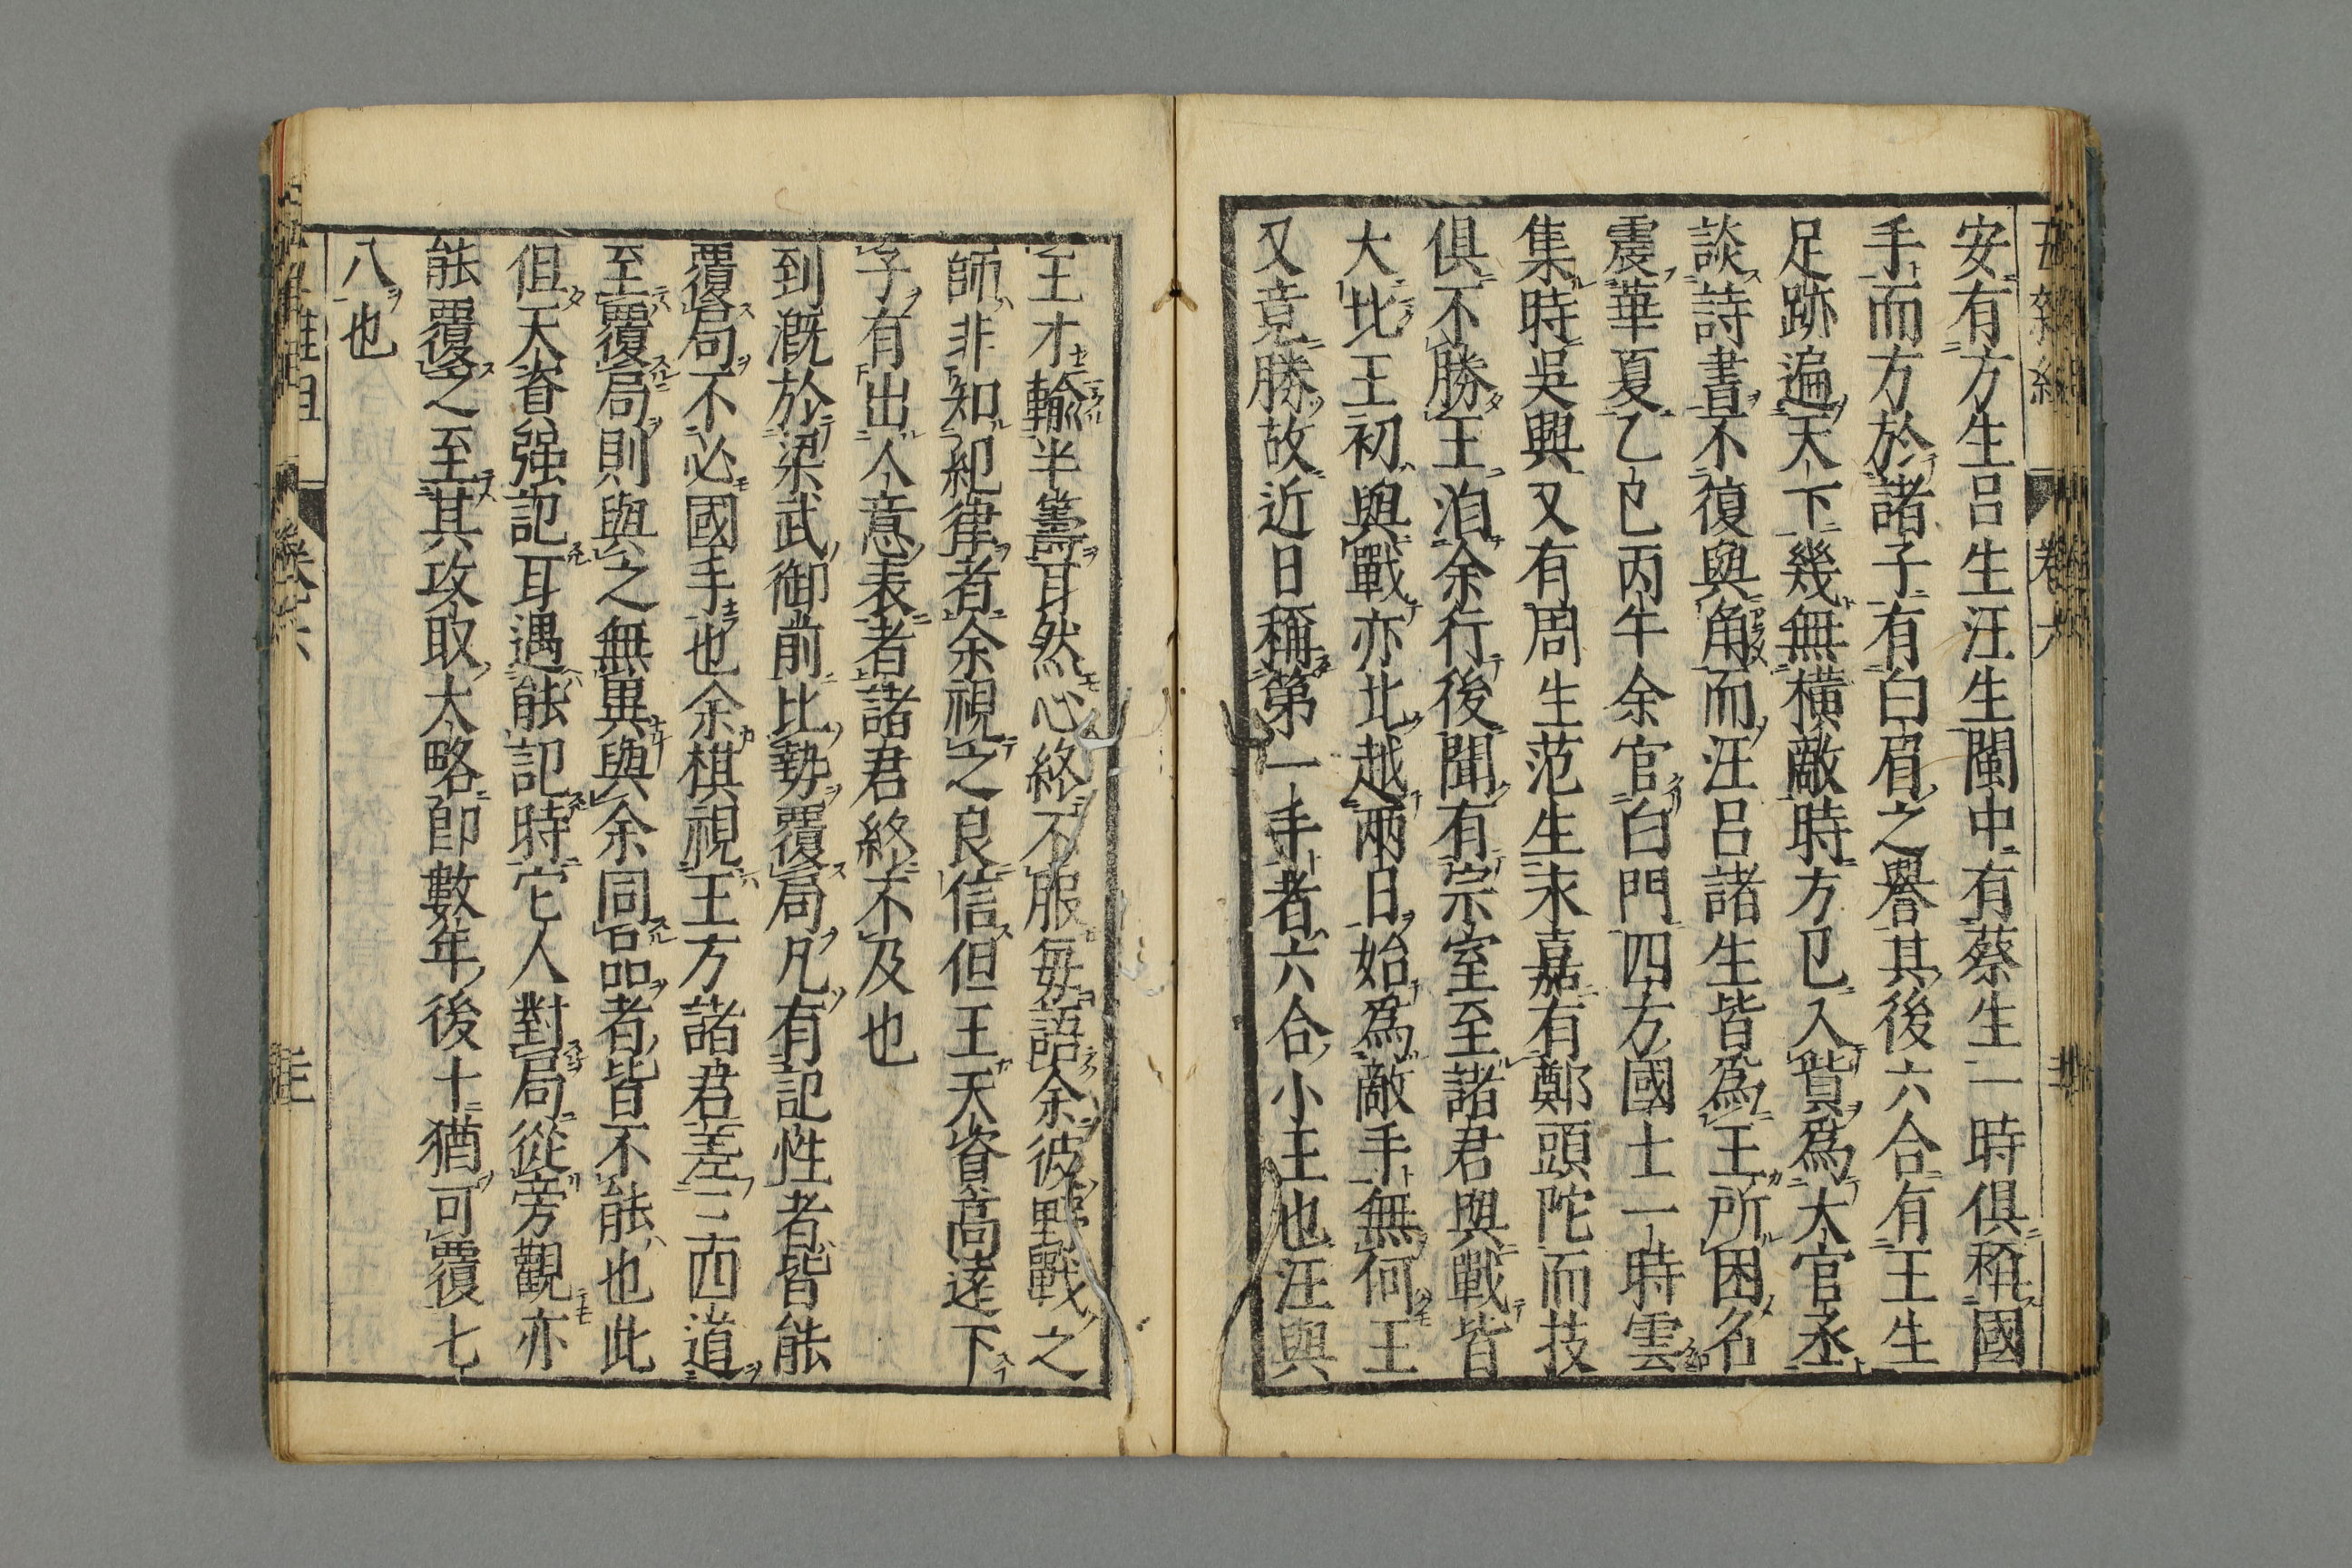 安有方生呂生汪生閩中有蔡生一時俱稱國
手而方於諸子有白眉之譽其後六合有王生
足跡遍天下幾無橫敵時方已入貲為大官丞
談詩書不復與角而汪呂諸生皆為王所困名
震華夏乙巳丙午余官白門四方國士一時雲
集時吳興又有周生范生永嘉有鄭頭陀而技
俱不勝王洎余行後聞有宗室至諸君與戰皆
大北王初與戰亦北越兩日始為敵手無何王
又竟勝故近日稱第一手者六合小王也汪與
王才輸半籌耳然心終不服每語余彼野戰之
師非知紀律者余視之良信但王天資高遠下
子有出人意表者諸君終不及也
到溉於梁武御前比勢覆局凡有記性者皆能
覆局不必國手也余棋視王方諸君差三四道
至覆局則與之無異與余同品者皆不能也此
但天資強記耳遇能記時它人對局從旁觀亦
能覆之至其攻取大略即數年後十猶可覆七
八也
卷六